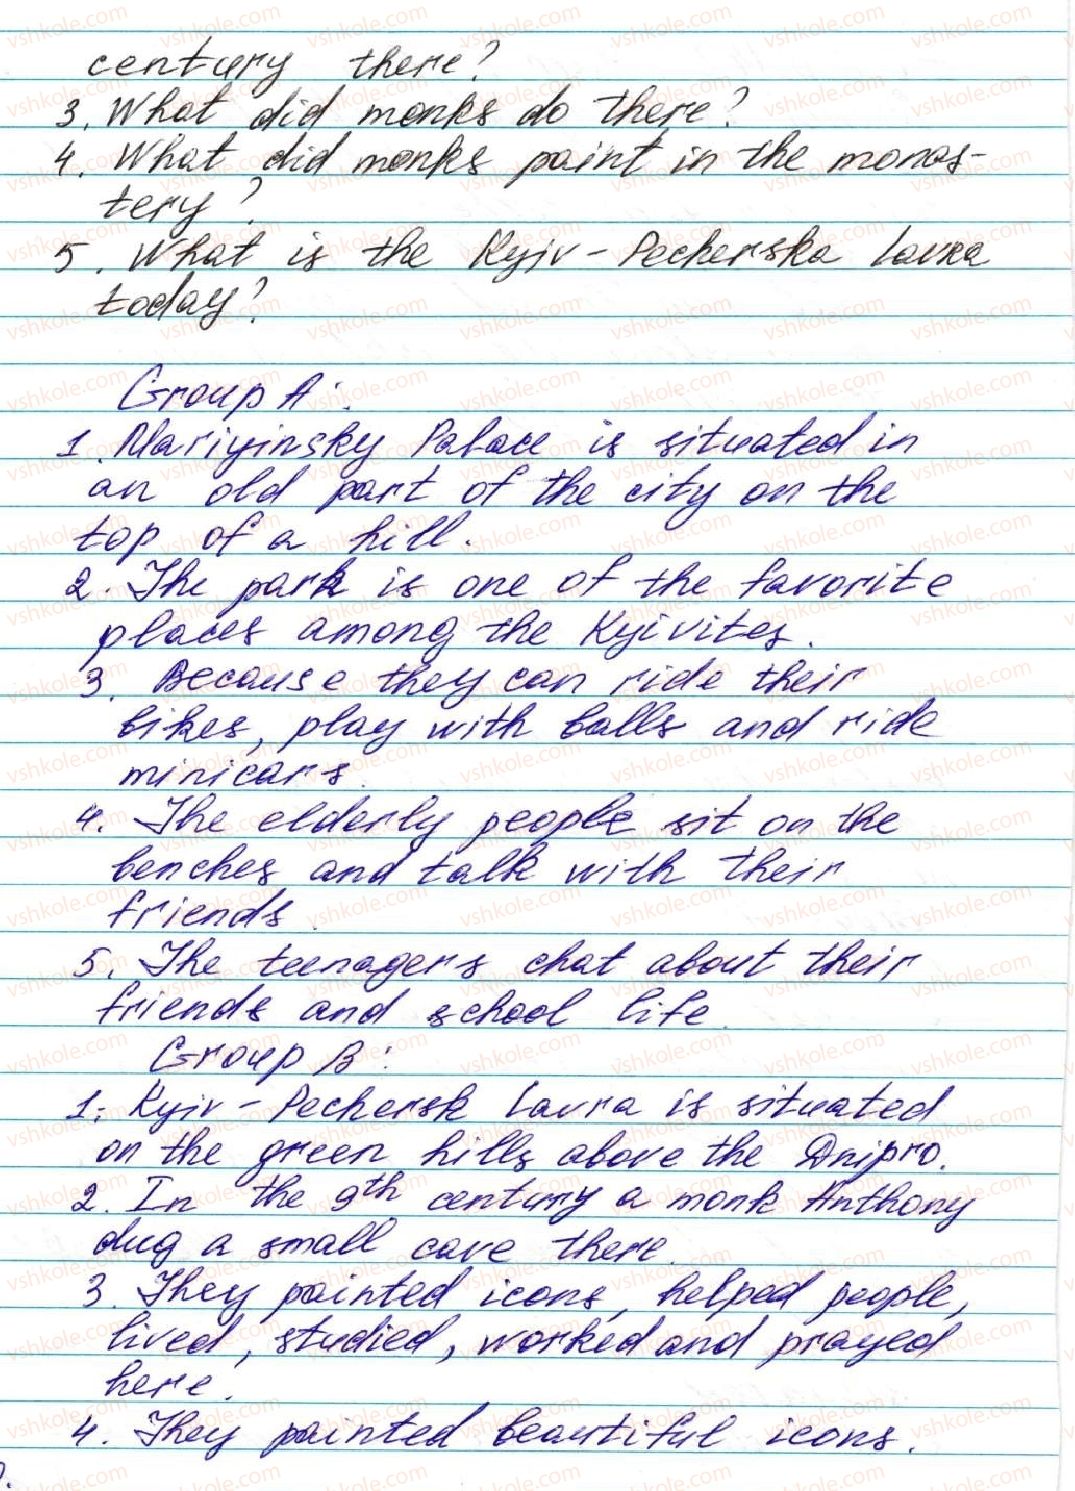 century there?
3. What did monks do there?
4. What did monks paint in the monas-
tery?
5. What is the Kyiv-Pecherska Lavra
today?
Group A:
1. Mariyinsky Palace is situated in
an old part of the city on the
top of a hill.
2. The park is one of the favorite
places among the Kyivites.
3. Because they can ride their
bikes, play with balls and ride
minicars.
4. The elderly people sit on the
benches and talk with their
friends.
5. The teenagers chat about their
friends and school life.
Group B:
1. Kyiv-Pechersk Lavra is situated
on the green hills above the Dnipro.
2. In the 9th century a monk Anthony
dug a small cave there.
3. They painted icons, helped people,
lived, studied, worked and prayed
here.
4. They painted beautiful icons.